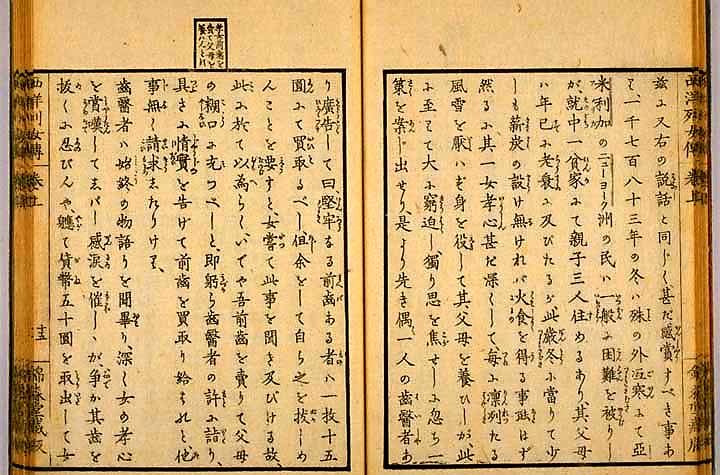 西洋列女傳 卷之上
茲に又右の說話と同じく甚だ感賞すべき事あ
り、一千七百八十三年の冬ハ殊の外沍寒にて亞
米利加のニューヨーク洲の民ハ一般に困難を被りし
が、就中一貧家にて親子三人住めるあり、其父母
ハ年已に老衰に及びたるが此嚴冬に當りて少
しも薪炭の設け無けれバ火食を得る事能はず
然るに其一女孝心甚だ深くして每に凛冽たる
風雪を厭はず身を役して其父母を養ひしが此
に至て大に窮迫し獨り思を焦せしに忽ち一
策を案じ出せり、是より先き偶一人の齒醫者あ
り廣告して曰、堅牢なる前齒ある者ハ一枚十五
圓にて買取るべし、但余をして自ら之を拔しめ
んことを要すと、女嘗て此事を聞き及びける故
此に於て以爲らく、いでや吾前齒を賣りて父母
の糊口に充つべしと、即躬ら齒醫者の許に詣り、
具さに情實を告げて前齒を買取り給はれと他
事無く請求したりけり、
齒醫者ハ始終の物語りを聞畢り、深く女の孝心
を賞嘆して 感涙を催し、 爭か其齒を
拔くに忍びんや、軈て貨幣五十圓を取出して女
西洋列女傳 卷之上 十三